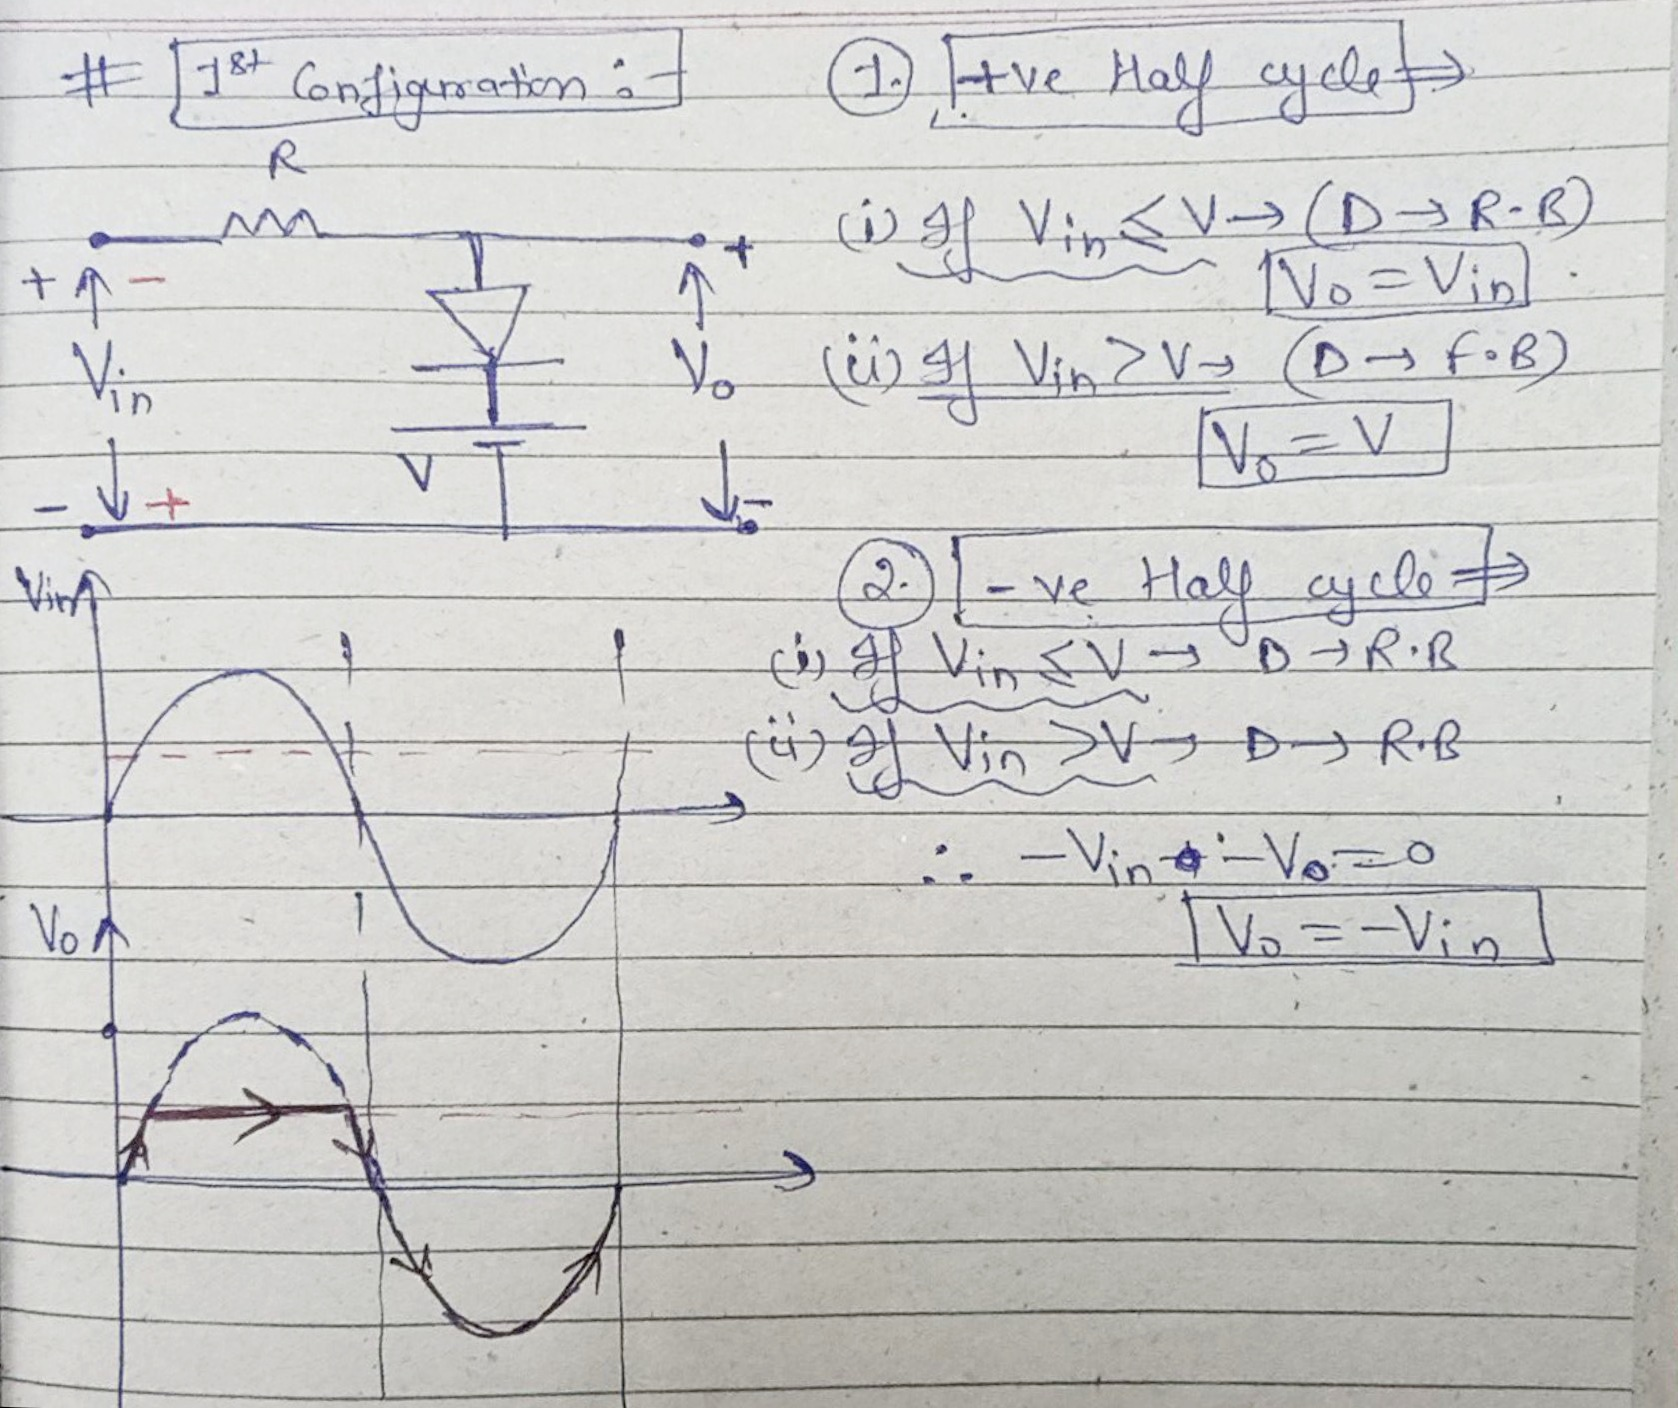 # 1st Configuration :-
R
+ -
Vin
- +
V
+
Vo
-
Vin
Vo
1. +ve Half cycle ⇒
(i) If Vin ≤ V → (D → R.B)
Vo = Vin
(ii) If Vin > V → (D → F.B)
Vo = V
2. -ve Half cycle ⇒
(i) If Vin ≤ V → D → R.B
(ii) If Vin > V → D → R.B
∴ -Vin - Vo = 0
Vo = -Vin